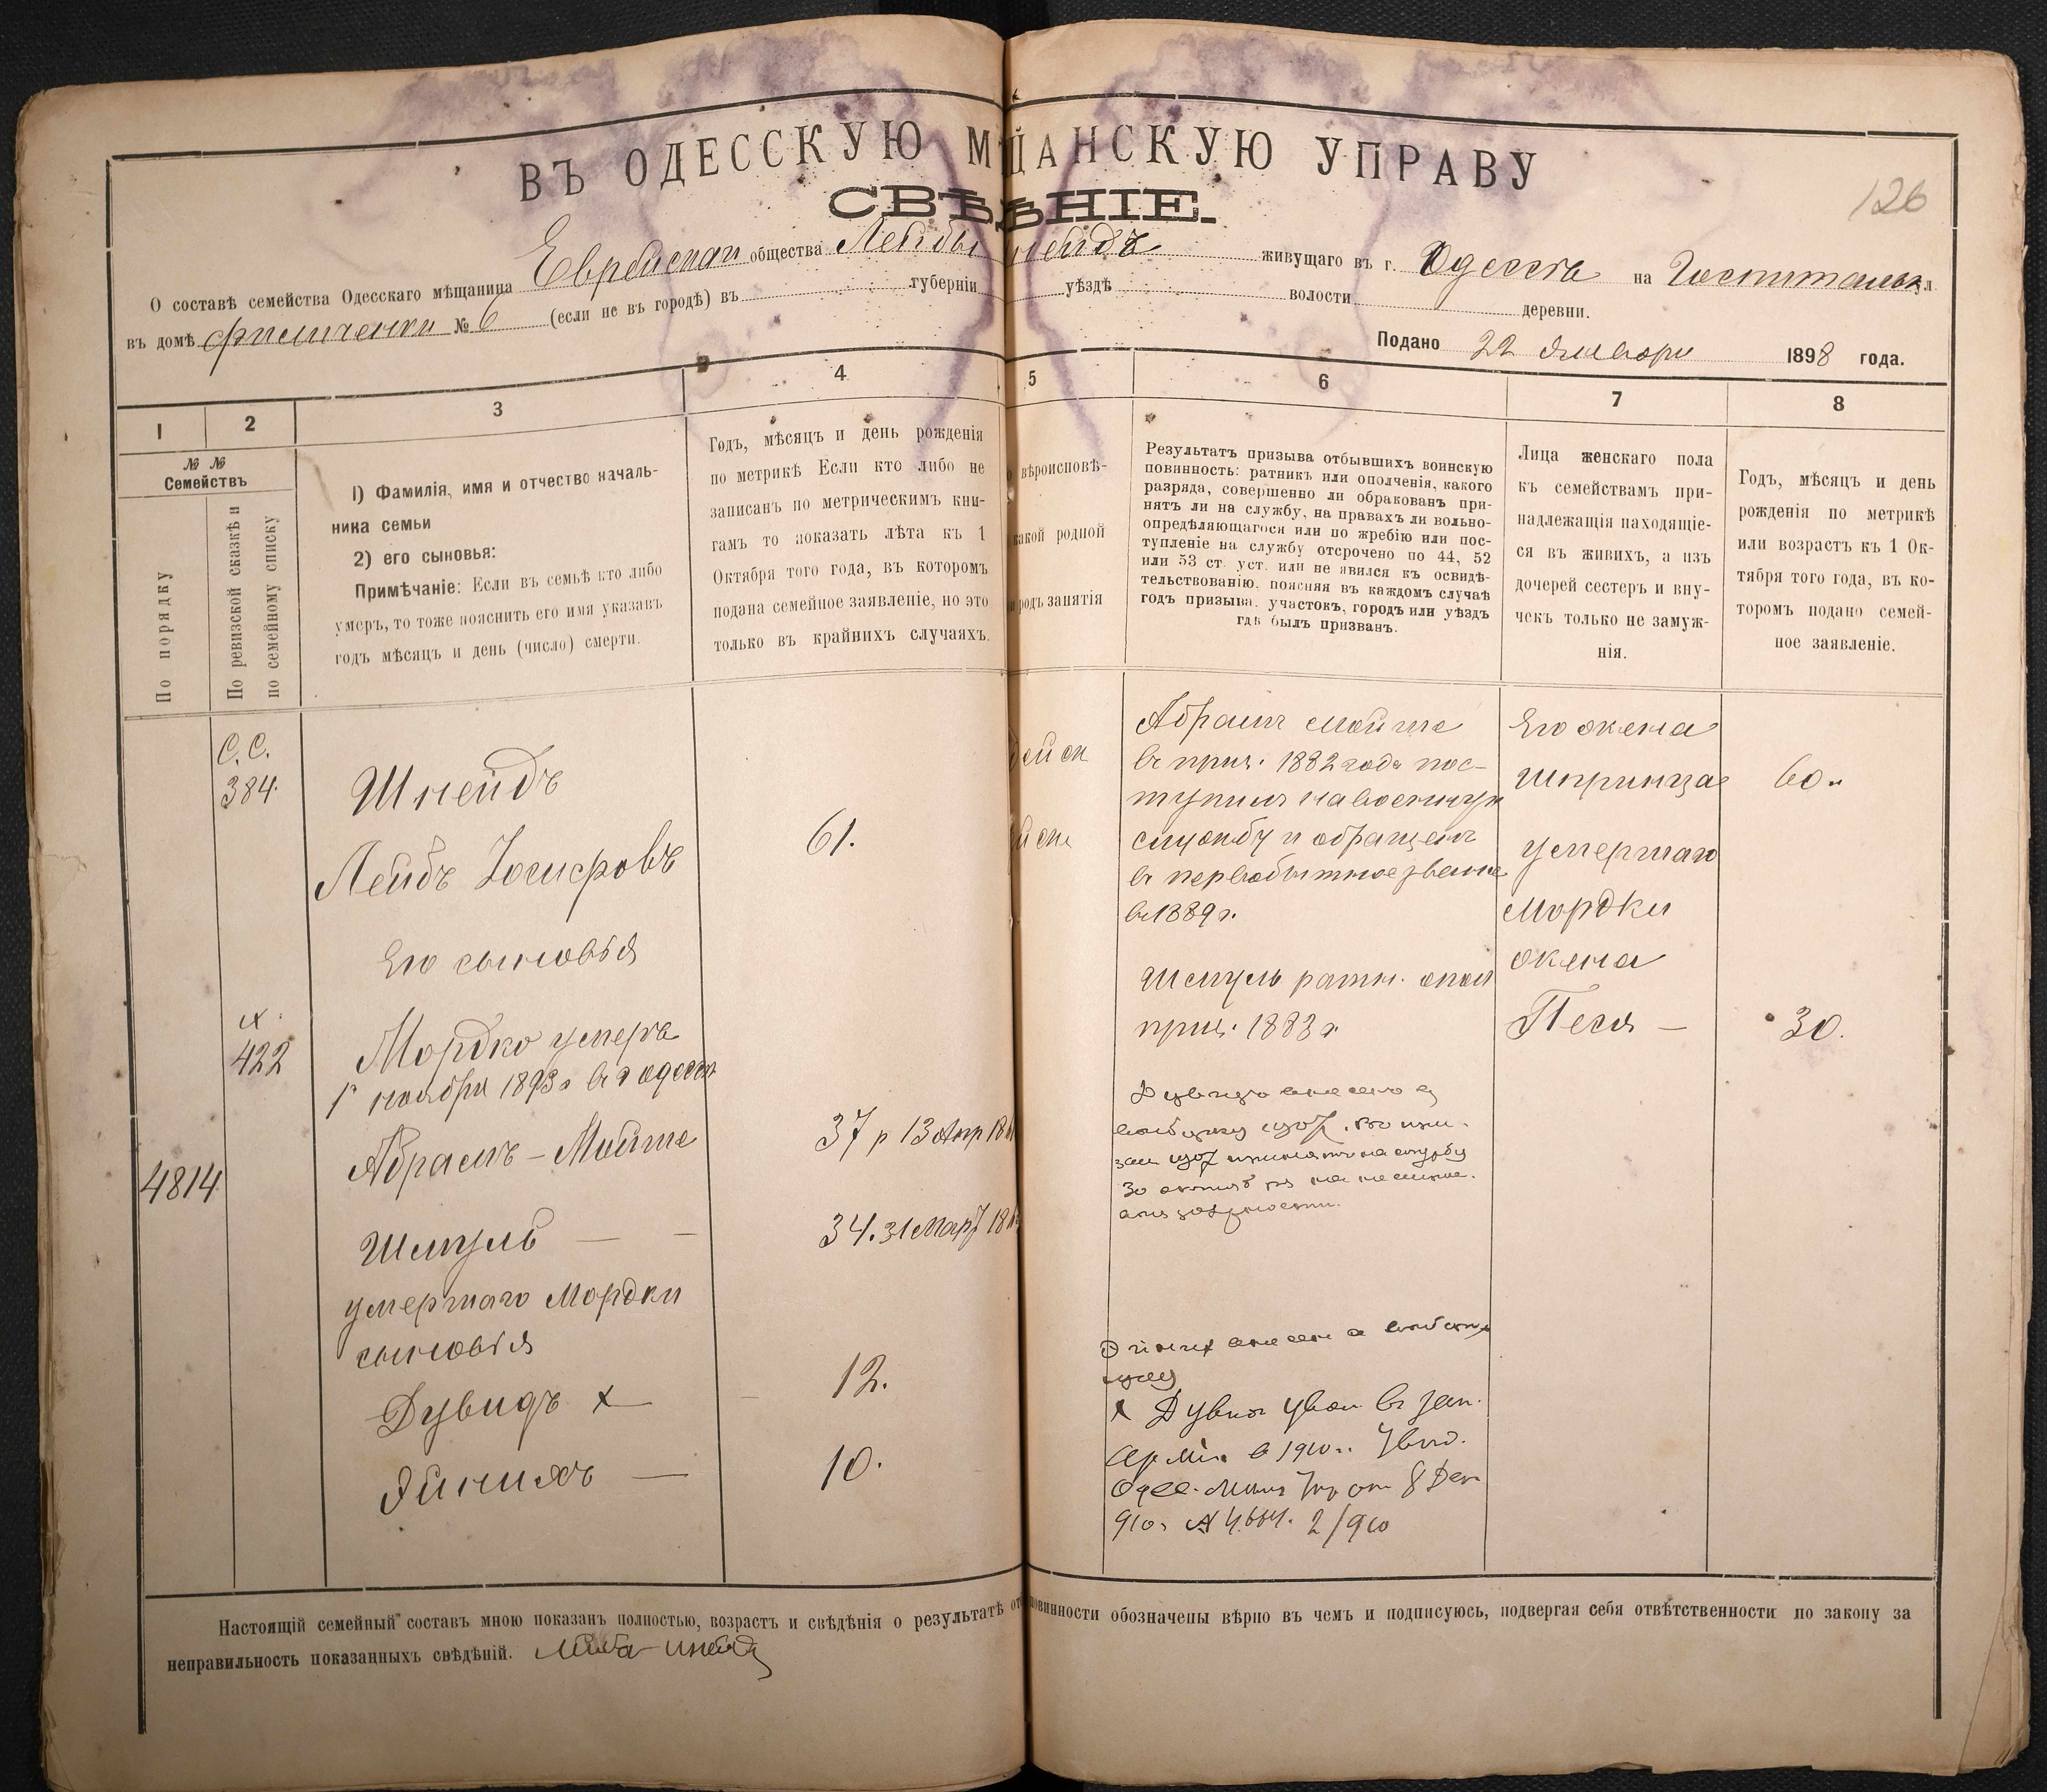 126
ВЪ ОДЕССКУЮ МЩАНСКУЮ УПРАВУ
СВѢНІЕ.
О составѣ семейства Одесскаго мѣщанина Еврейскаго общества Лейбы Шнейдъ живущаго въ г. Одессѣ на Госпитальн ул
въ домѣ Филиченки № 6 (если не въ городѣ) въ губерніи уѣздѣ волости деревни.
Подано 22 Января 1898 года.
1 2 3 4 5 6 7 8
№ №
Семействъ
По порядку
По ревизской сказкѣ и
по семейному списку
1) Фамилія, имя и отчество началь-
ника семьи
2) его сыновья:
Примѣчаніе: Если въ семьѣ кто либо
умеръ, то тоже пояснить его имя указавъ
годъ мѣсяцъ и день (число) смерти.
Годъ, мѣсяцъ и день рожденія
по метрикѣ Если кто либо не
записанъ по метрическимъ кни-
гамъ то показать лѣта къ 1
Октября того года, въ которомъ
подана семейное заявленіе, но это
только въ крайнихъ случаяхъ.
вѣроисповѣ-
какой родной
родъ занятія
Результатъ призыва отбывшихъ воинскую
повинность: ратникъ или ополченія, какого
разряда, совершенно ли обракованъ при-
нятъ ли на службу, на правахъ ли вольно-
опредѣляющагося или по жребію или пос-
тупленіе на службу отсрочено по 44, 52
или 53 ст. уст. или не явился къ освидѣ-
тельствованію, поясняя въ каждомъ случаѣ
годъ призыва, участокъ, городъ или уѣздъ
гдѣ былъ призванъ.
Лица женскаго пола
къ семействамъ при-
надлежащія находящіе-
ся въ живихъ, а изъ
дочерей сестеръ и вну-
чекъ только не замуж-
нія.
Годъ, мѣсяцъ и день
рожденія по метрикѣ
или возрастъ къ 1 Ок-
тября того года, въ ко-
торомъ подано семей-
ное заявленіе.
С.С.
384.
Шнейдъ
Лейбъ Іосифовъ
61.
Его сыновья
422
Мордко умеръ
1 ноября 1893 г въ г одессѣ
Абрамъ-Мойше
37 р 13 Апр 18
4814
Шмуль — —
34. 31 Мар 18
умершаго Мордки
сыновья
Дувидъ х —
12.
Эйнихъ —
10.
Абрамъ Мойше
въ приз. 1882 года пос-
тупилъ на военную
службу и обращенъ
въ первобытное званіе
въ 1889 г.
Шмуль ратн. опол
приз. 1883 г.
х Дувидъ увол въ зап.
Арміи в 1910 г. Увѣд.
910 г № 4664. 2/910
Его жена
Шпринца
60
умершаго
Мордки
жена
Песя —
30.
Настоящій семейный составъ мною показанъ полностью, возрастъ и свѣдѣнія о результатѣ от повинности обозначены вѣрно въ чемъ и подписуюсь, подвергая себя отвѣтственности по закону за
неправильность показанныхъ свѣдѣній. Лейба Шнейд